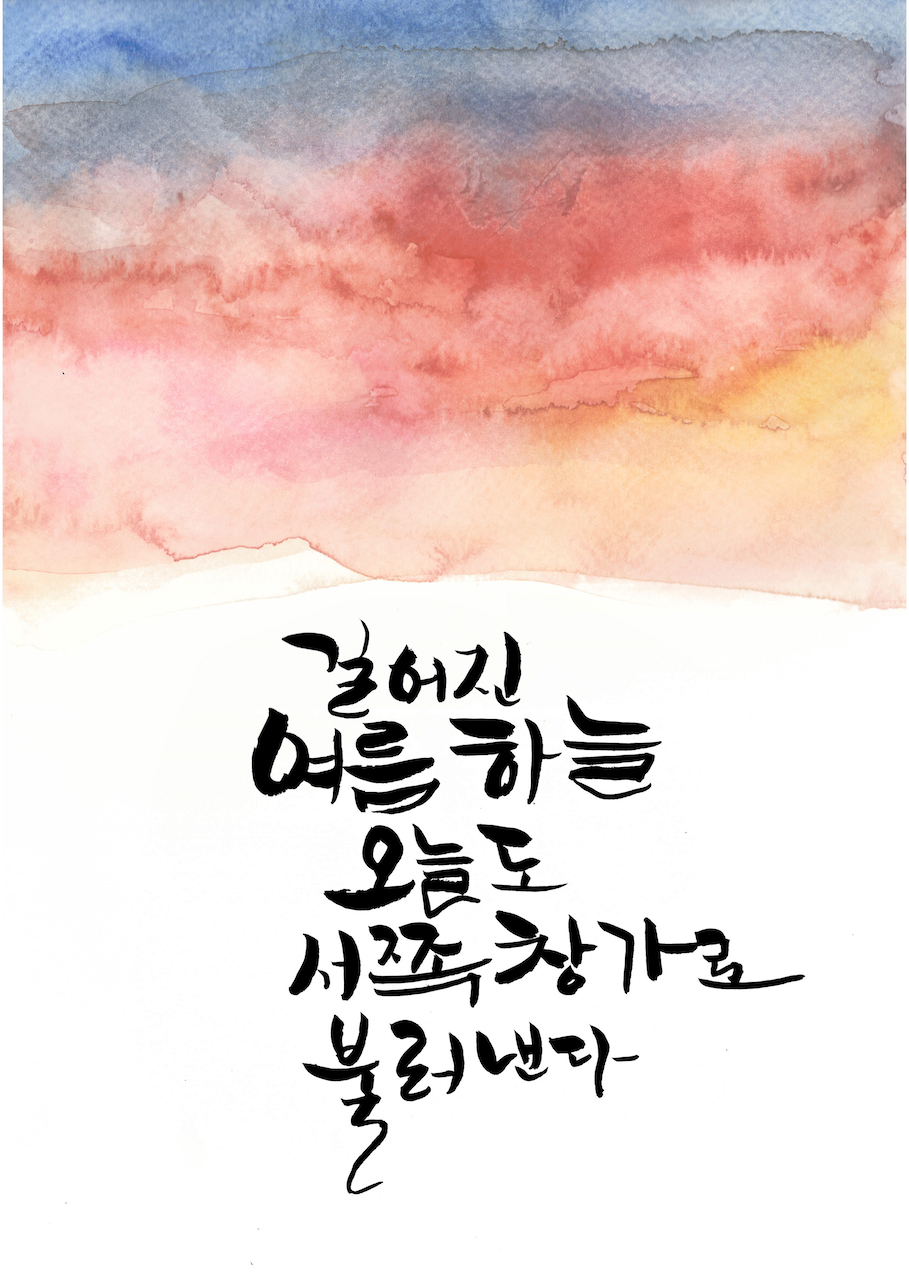 길어진
여름 하늘
오늘도
서쪽 창가로
불러낸다